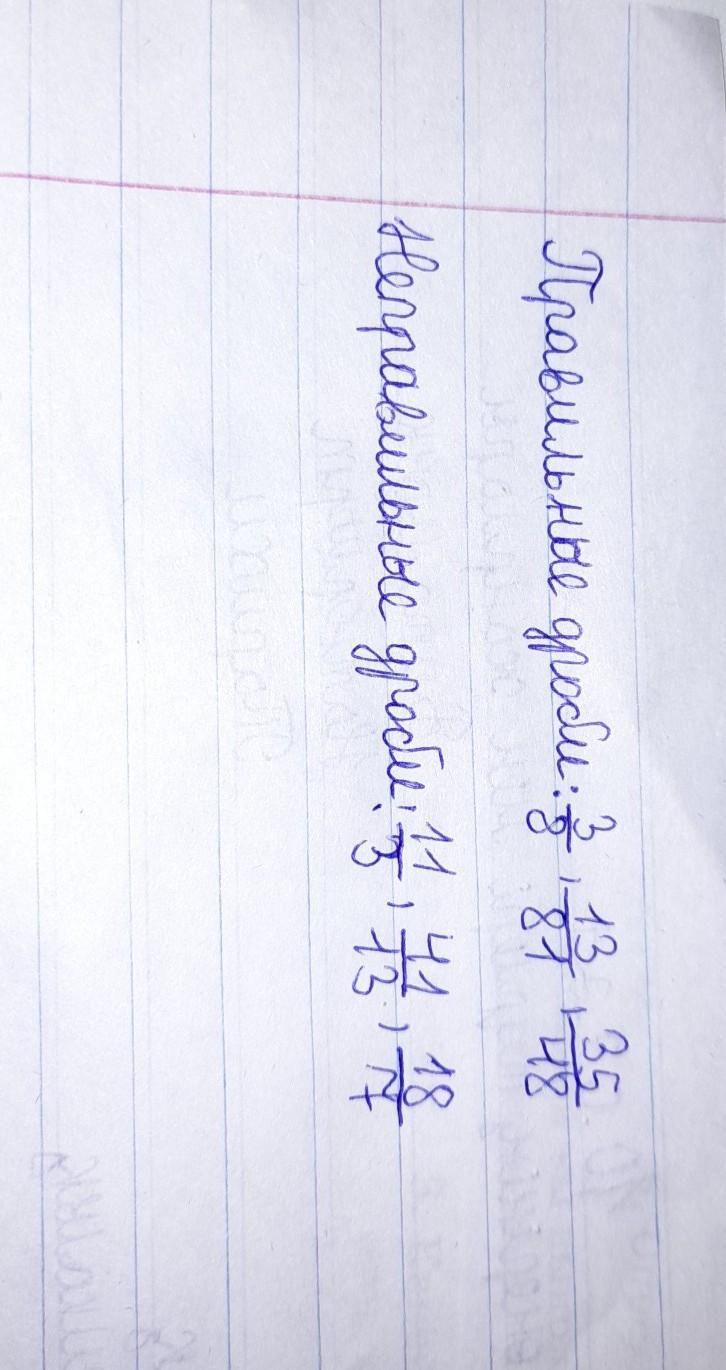 Правильные дроби: 3/8, 13/81, 35/48
Неправильные дроби: 11/3, 41/13, 18/7